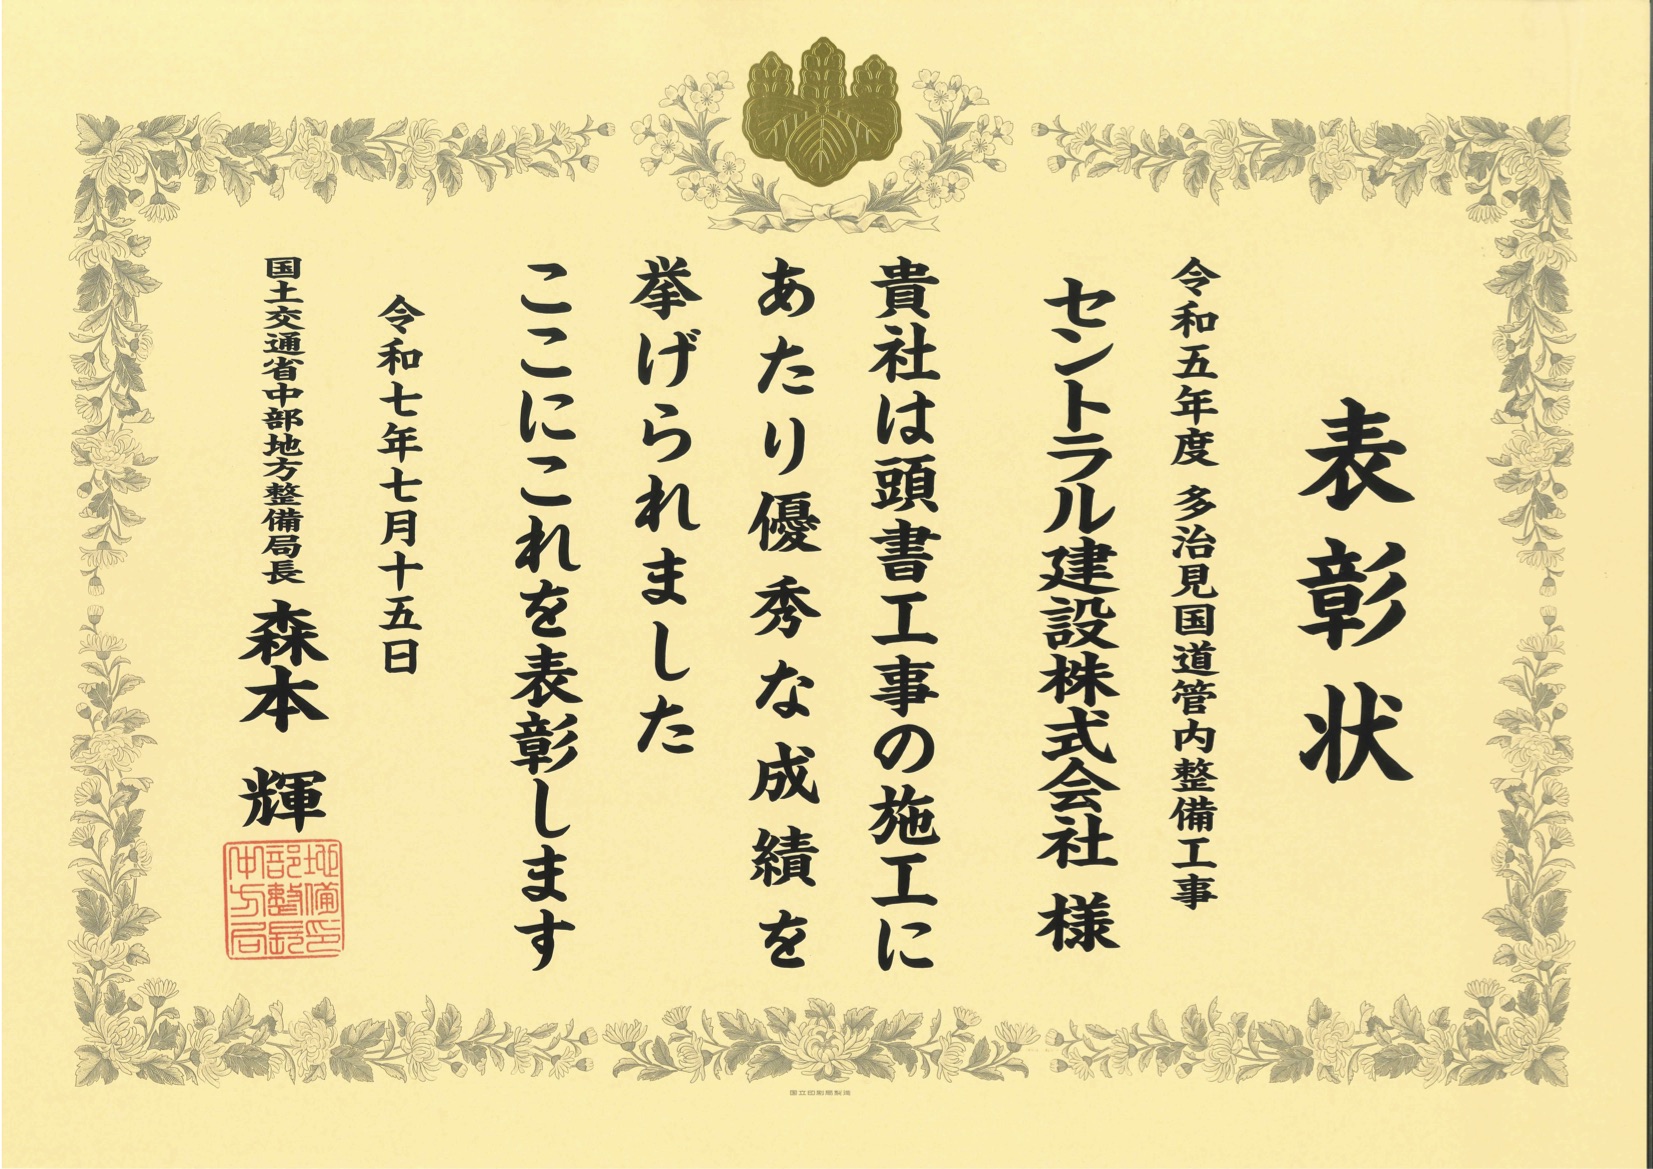 表彰状
令和五年度 多治見国道管内整備工事
セントラル建設株式会社 様
貴社は頭書工事の施工に
あたり優秀な成績を
挙げられました
ここにこれを表彰します
令和七年七月十五日
国土交通省中部地方整備局長 森本 輝
中部地方整備局長印
国立印刷局製造